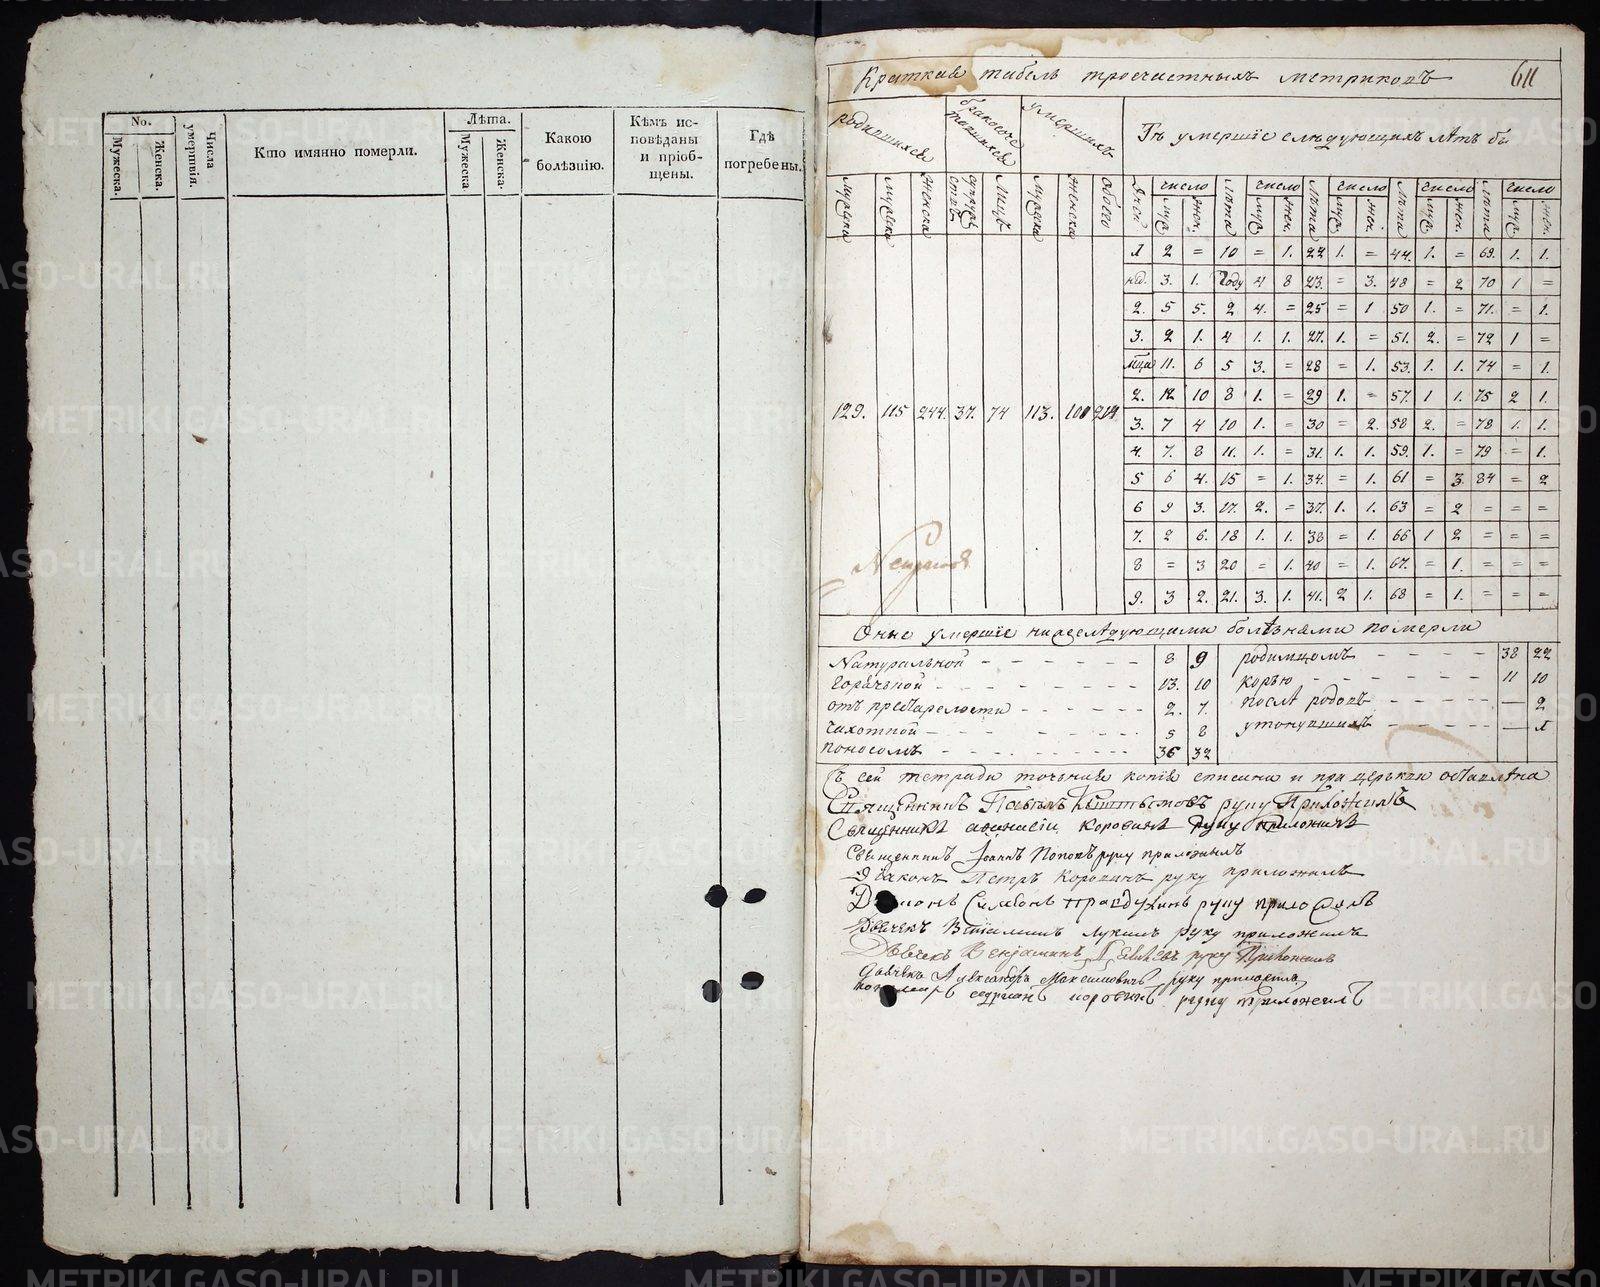 No.
Мужеска.
Женска.
Числа умертвія.
Кто имянно померли.
Лѣта.
Мужеска
Женска.
Какою
болѣзнію.
Кѣмъ ис-
повѣданы
и пріоб-
щены.
Гдѣ
погребены.
Краткая табель троечастнымъ метрикомъ
611
родившихся
бракосоче
тавшихся
умершихъ
мужеска
женска
супруже
ствъ
Лицъ
мужеска
женска
обоего
число
число
число
число
число
муж.
жен.
лѣта
муж.
жен.
лѣта
муж.
жен.
лѣта
муж.
жен.
лѣта
муж.
жен.
129. 115 244. 37. 74 113. 101 214
1 2 = 10 = 1. 22 1. = 44. 1. = 69. 1. 1.
нед. 3. 1. Году 4 8 23. = 3. 48 = 2 70 1 =
2. 5 5. 2 4. = 25 = 1 50 1. = 71. = 1.
3. 2 1. 4 1. 1. 27. 1. = 51. 2. = 72 1 =
мца 11. 6 5 3. = 28 = 1. 53. 1. 1. 74 = 1.
2. 12 10 8 1. = 29 1. = 57. 1 1. 75 2 1.
3. 7 4 10 1. = 30 = 2. 58 2. = 78 1. 1.
4. 7. 8 11. 1. = 31. 1. 1. 59. 1. = 79 = 1.
5 6 4. 15 = 1. 34. = 1. 61 = 3. 84 = 2
6 9 3. 17. 2. = 37. 1. 1. 63 = 2 = = =
7. 2 6. 18 1. 1. 38 = 1. 66 1 2 = = =
8 = 3 20 = 1. 40 = 1. 67. = 1. = = =
9. 3 2. 21. 3. 1. 41. 2 1. 68 = 1. = = =
Оные умершіе нижеслѣдующими болѣзнями померли
Натуральной 8 9 родимцомъ 38 22
горячьной 13. 10 корью 11 10
отъ престарелости 2. 7. послѣ родовъ — 2
чахотной 5 8 утонувшихъ — 1
поносомъ 36 32
Съ сей тетради точьная копія списана и при церькви оставлѣна
Священникъ Павелъ Кыштымовъ руку Приложилъ
Священникъ Афанасіи Коровинъ руку приложилъ
Священникъ Іоаннъ Поповъ руку приложилъ
Діаконъ Петръ Коровинъ руку приложилъ
Симеонъ Правдухинъ руку приложилъ
Дьячекъ Лукинъ руку приложилъ
Дьячекъ Веніаминъ руку Приложилъ
Дьячекъ Александръ Максимовичъ руку приложилъ
Коровинъ руку приложилъ